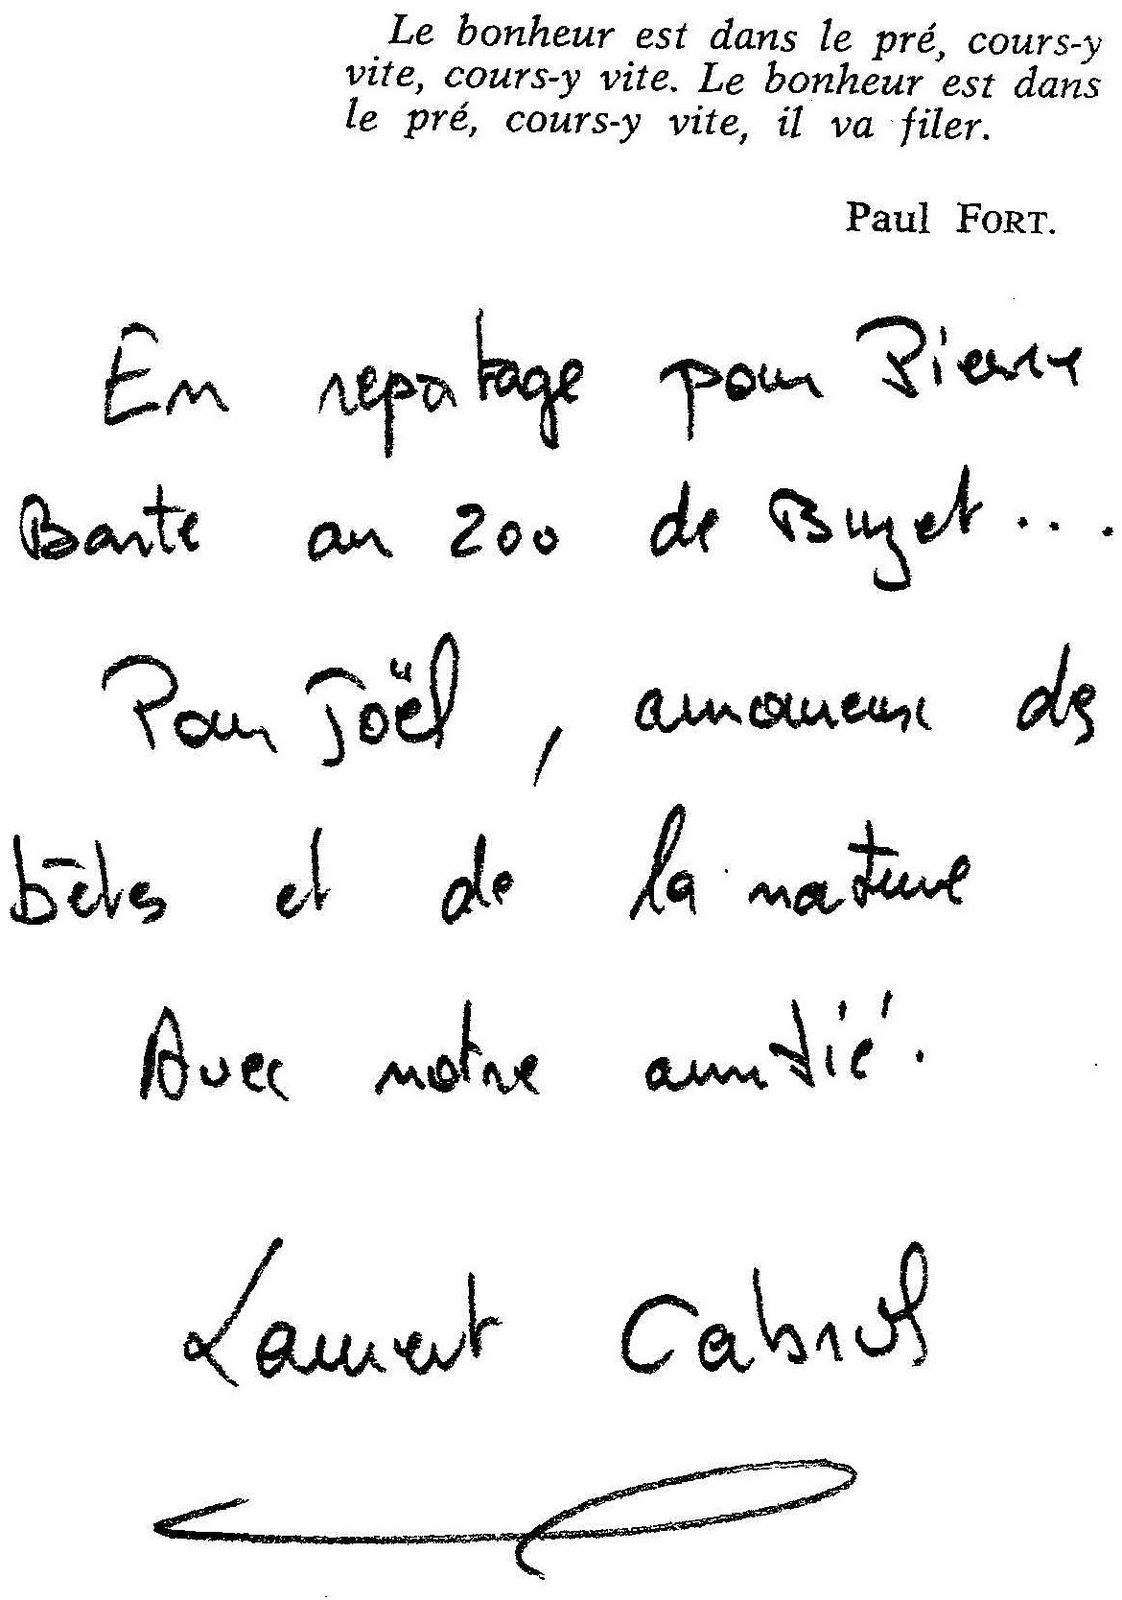 Le bonheur est dans le pré, cours-y
vite, cours-y vite. Le bonheur est dans
le pré, cours-y vite, il va filer.
Paul FORT.
En reportage pour Pierre
Barte au 200 de Buzet...
Pour Joël, amoureux des
bêtes et de la nature
Avec notre amitié.
Laurent Cabrol